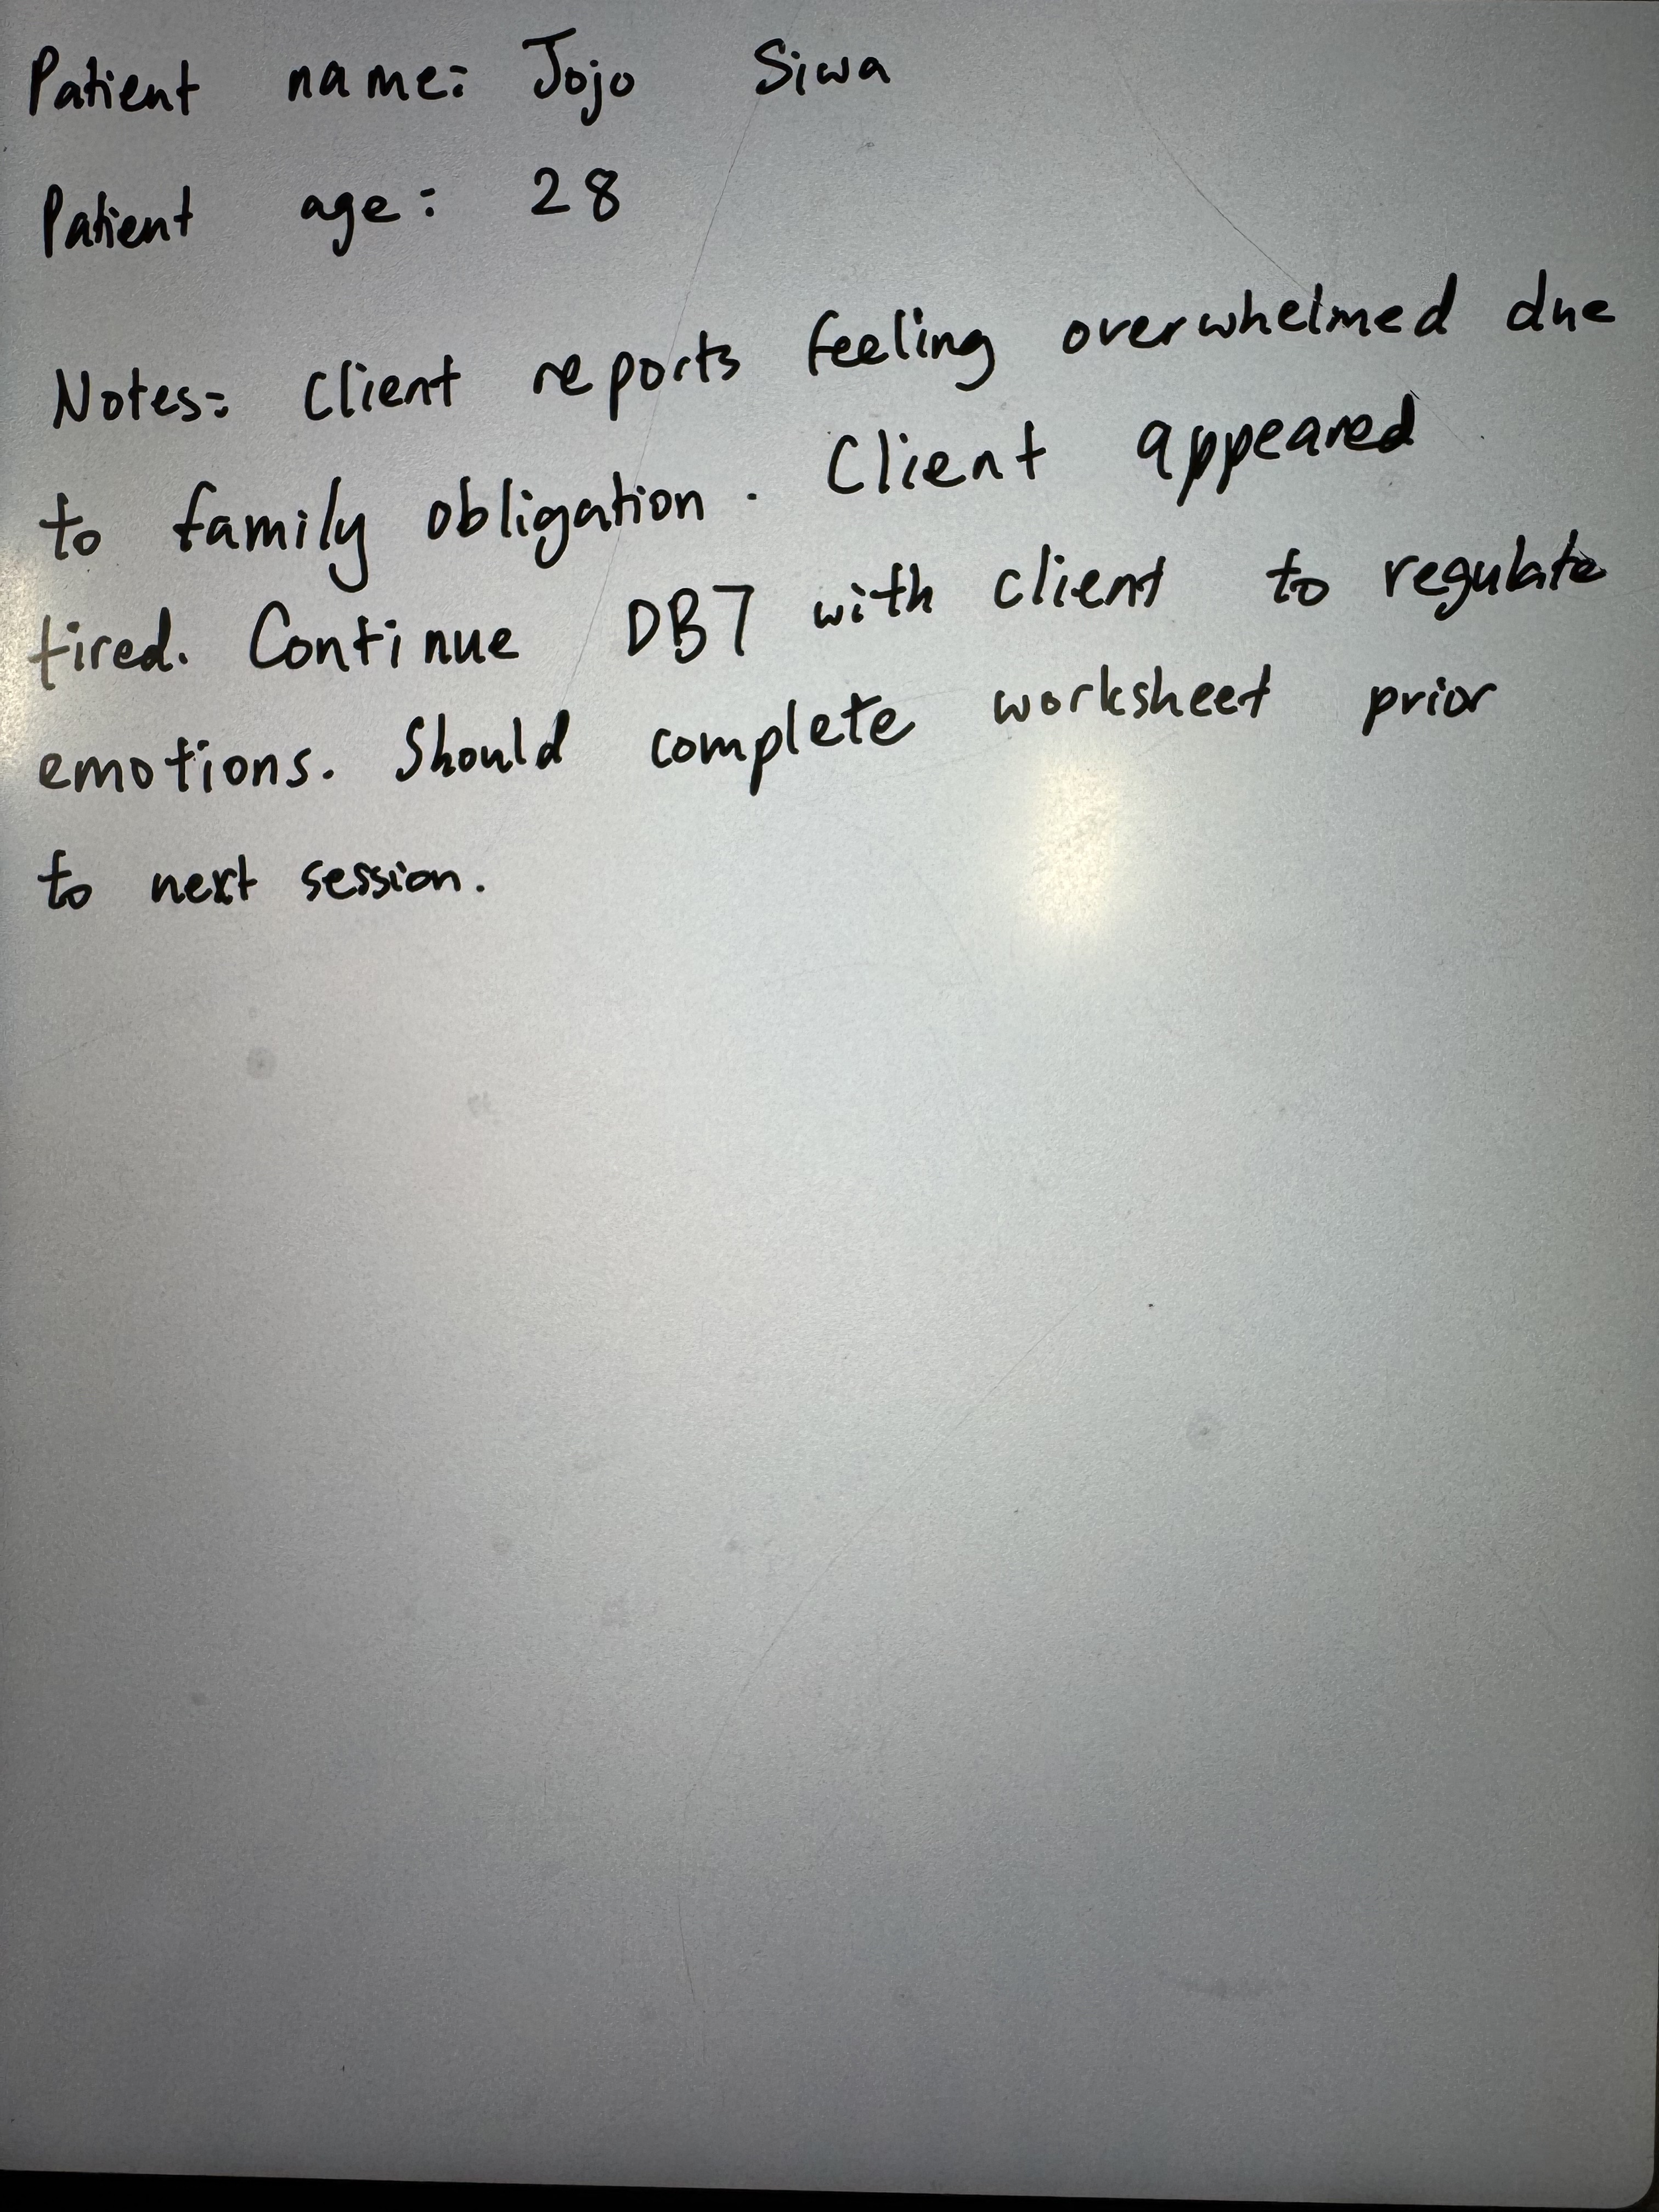 Patient name: Jojo Siwa
Patient age: 28
Notes: Client reports feeling overwhelmed due
to family obligation. Client appeared
tired. Continue DBT with client to regulate
emotions. Should complete worksheet prior
to next session.